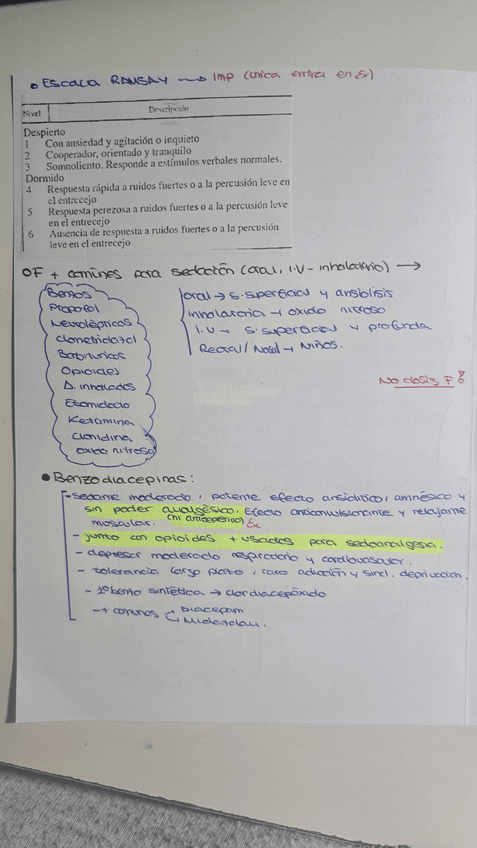 • Escala RAMSAY → Imp (única entra en Ex)
Nivel Descripción
Despierto
1 Con ansiedad y agitación o inquieto
2 Cooperador, orientado y tranquilo
3 Somnoliento. Responde a estímulos verbales normales.
Dormido
4 Respuesta rápida a ruidos fuertes o a la percusión leve en
el entrecejo
5 Respuesta perezosa a ruidos fuertes o a la percusión leve
en el entrecejo
6 Ausencia de respuesta a ruidos fuertes o a la percusión
leve en el entrecejo
F + comunes para sedación (oral, I.V - inhalatorio) →
Benzos
Propofol
Neurolépticos
Clometidazol
Barbitúricos
Opioides
A. inhalados
Etomidato
Ketamina
Clonidina
Oxido nitroso
oral → S. superficial y ansiolisis
inhalatoria → oxido nitroso
I.V → S. superficial y profunda
Rectal / Nasal → Niños.
No dosis F
• Benzodiacepinas:
- sedante moderado, potente efecto ansiolítico, amnésico y
sin poder analgésico. Efecto anticonvulsionante y relajante
muscular. (ni antidepresivo) Ex
- junto con opioides + usados para sedoanalgesia.
- depresor moderado respiratorio y cardiovascular.
- tolerancia largo plazo, raro adicción y sind. deprivación.
- 1º benzo sintética → clordiacepóxido
- + comunes Diacepam
Midazolam.